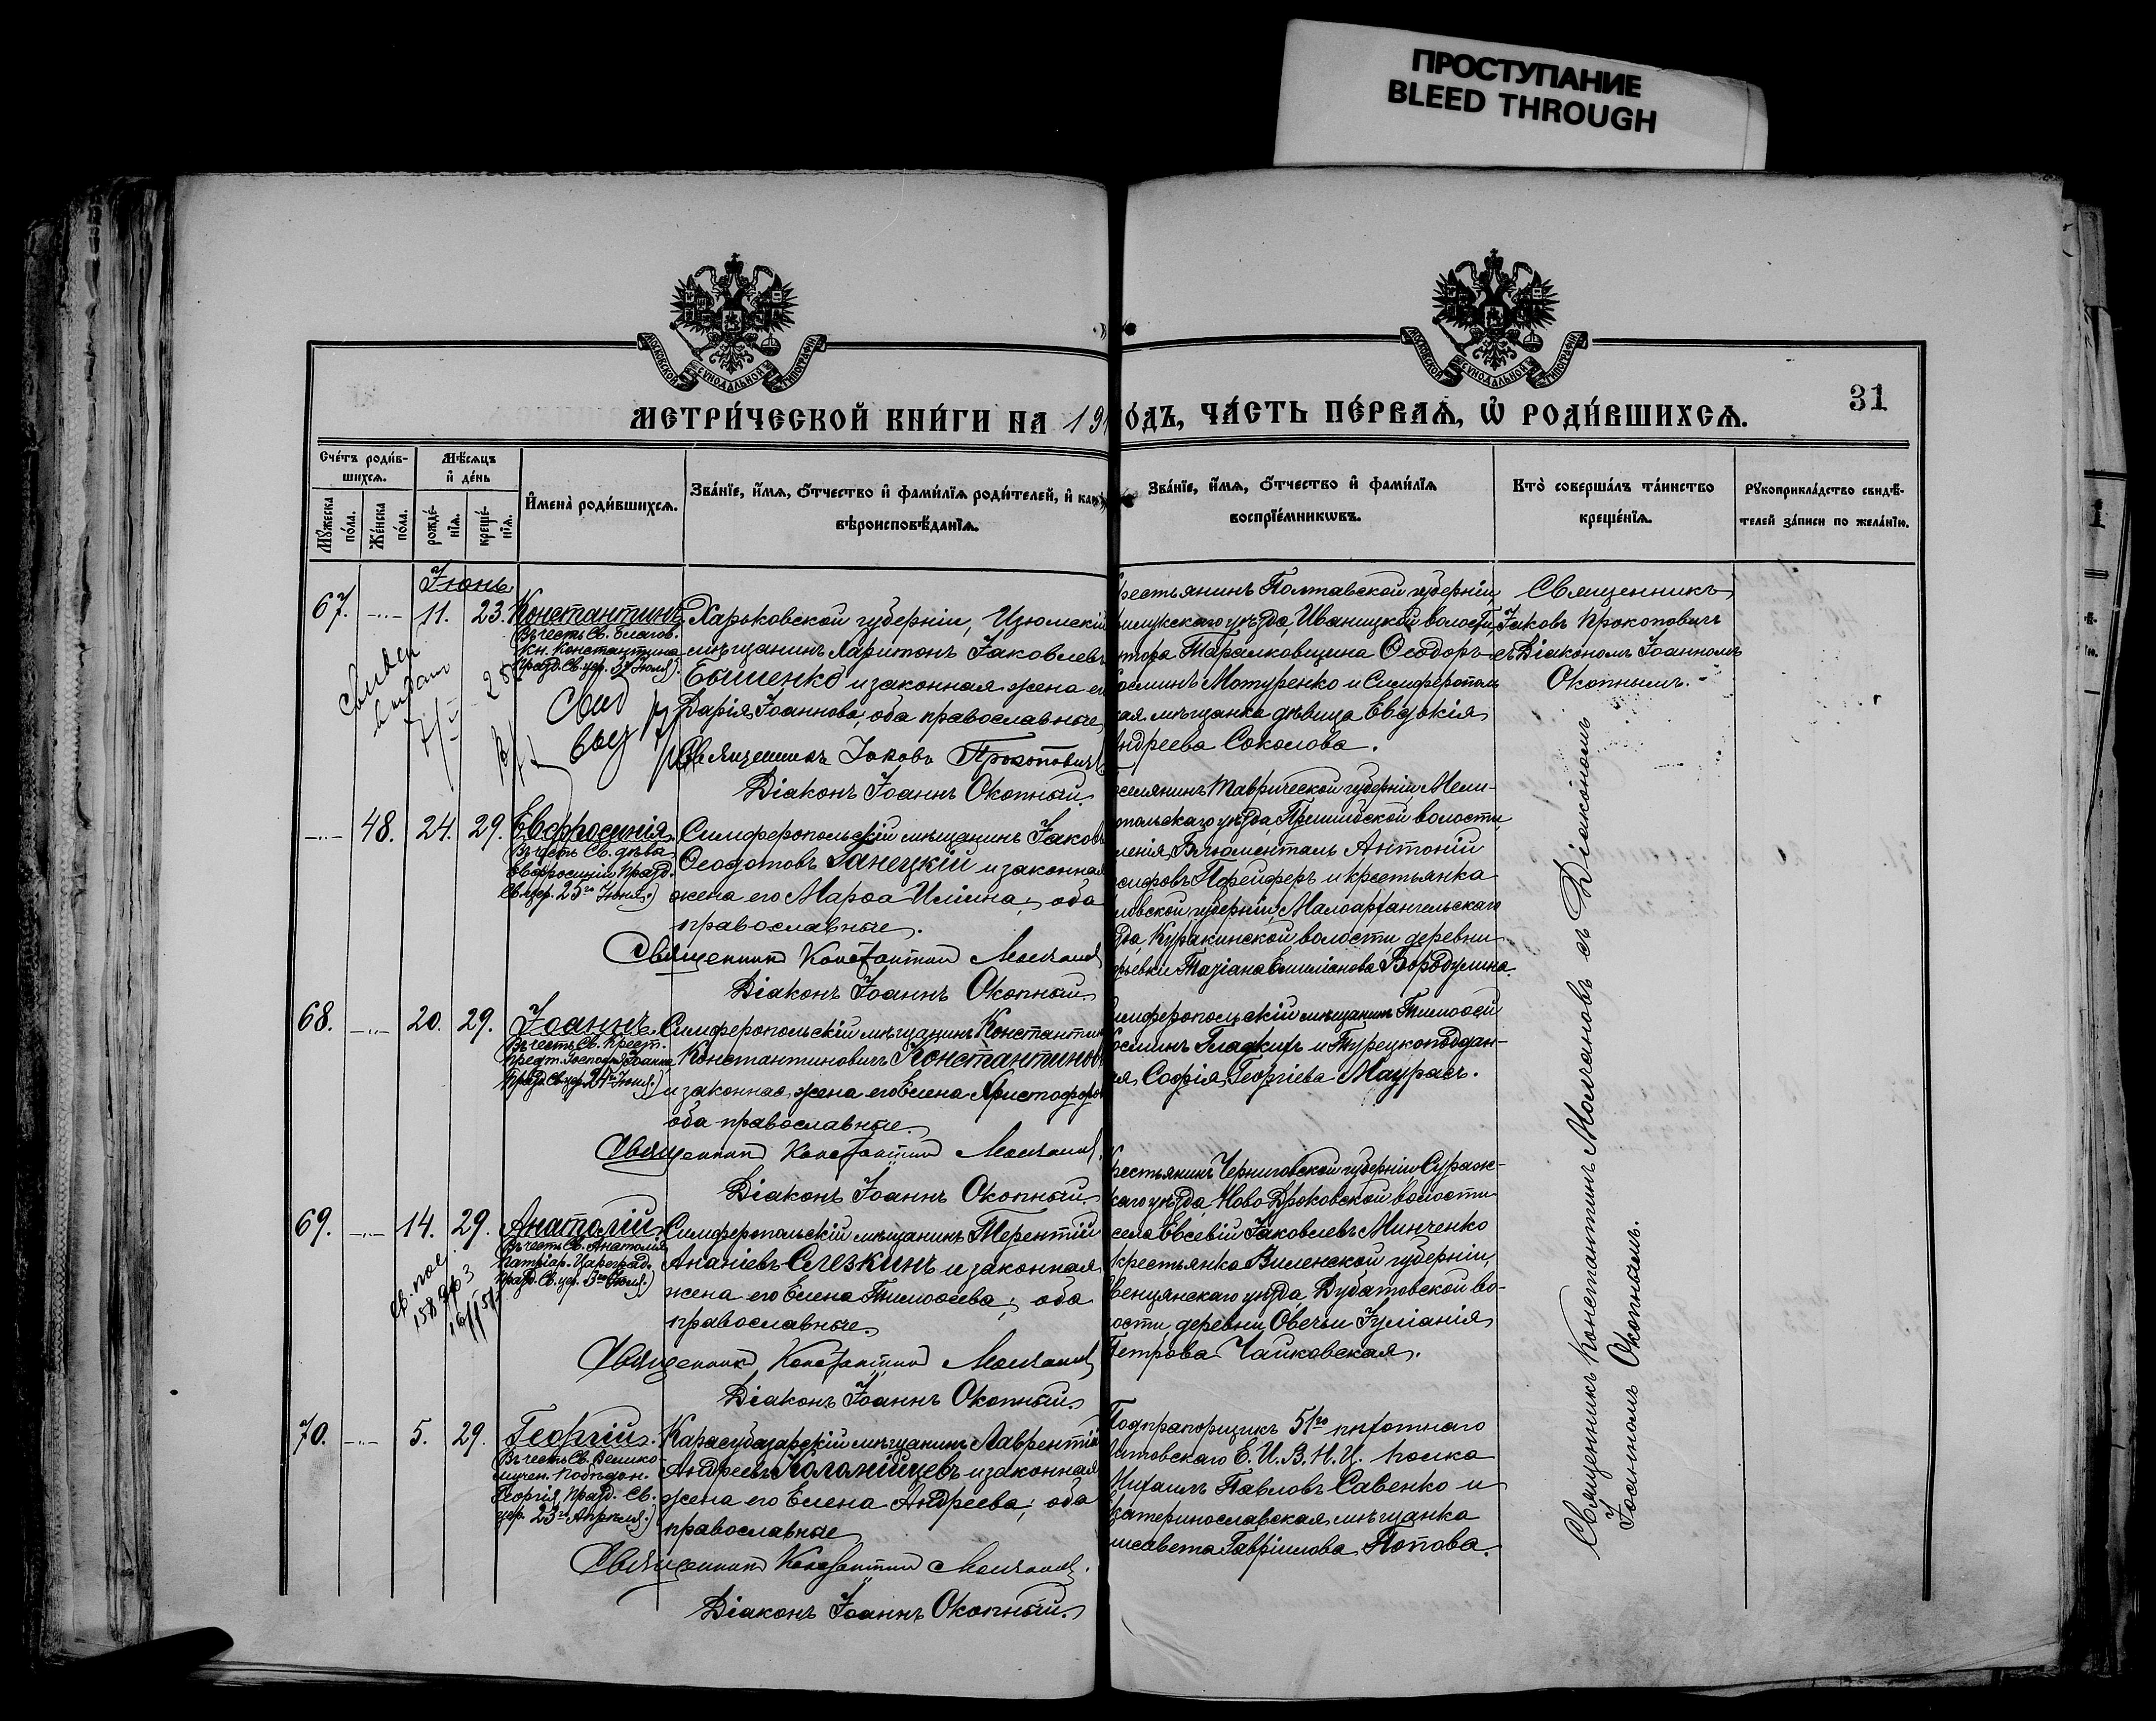 ПРОСТУПАНИЕ
BLEED THROUGH
МОСКОВСКОЙ СѴНОДАЛЬНОЙ ТИПОГРАФІИ
МОСКОВСКОЙ СѴНОДАЛЬНОЙ ТИПОГРАФІИ
31
МЕТРИ́ЧЕСКОЙ КНИ́ГИ НА 191
ОДЪ, ЧА́СТЬ ПЕ́РВАѦ, Ѡ РОДИ́ВШИХСѦ.
Сче́тъ роди́в-
шихсѧ.
Мꙋ́жеска по́ла.
Же́нска по́ла.
Мѣ́сѧцъ и де́нь
рожде́-нїѧ.
креще́-нїѧ.
Имена̀ роди́вшихсѧ.
Зва́нїе, и́мѧ, о́тчество и фами́лїѧ роди́телей, и как
вѣроисповѣ́данїѧ.
Зва́нїе, и́мѧ, о́тчество и фами́лїѧ
воспрїе́мникѡвъ.
Кто̀ соверша́лъ та́инство
креще́нїѧ.
Рꙋкоприкла́дство свидѣ́-
телей за́писи по жела́нїю.
Іюнь
67. 11. 23. Константинъ
Въ честь Св. благов.
кн. Константина
Харьковской губерніи, Изюмскій
мѣщанинъ Харитонъ Іаковлевъ
Бышенко и законная жена ег
Дарія Іоаннова, оба православные
Священникъ Іаковъ Прокоповичъ
Діаконъ Іоаннъ Окопный.
рестьянинъ Полтавской губерніи
рилукскаго уѣзда, Иваницкой волости,
утора Тарасковщина Ѳеодоръ
осминъ Мотуренко и Симферополь
кая мѣщанка дѣвица Евдокія
Андреева Соколова.
Священникъ
Іаковъ Прокоповичъ
съ Діакономъ Іоанномъ
Окопнымъ.
48. 24. 29. Евфросинія
Въ честь Св. дѣвы
Евфросиніи празд.
Св. цер. 25го Іюня.)
Симферопольскій мѣщанинъ Іаковъ
Ѳеодотовъ Ганецкій и законная
жена его Марѳа Иліина; оба
православные.
Священникъ Константинъ Молчановъ
Діаконъ Іоаннъ Окопный.
оселянинъ Таврической губерніи, Мели-
опольскаго уѣзда, Пришибской волости,
Блюменталь Антоній
осифовъ Пфейферъ и крестьянка
ловской губерніи, Малоархангельскаго
зда, Куракинской волости, деревни
Таціана Емиліанова Бородулина.
68. 20. 29. Іоаннъ.
Въ честь Св. Крест.
предт. Господня Іоанна
празд. Св. цер. 24го Іюня.)
Симферопольскій мѣщанинъ Константин
Константиновичъ Константинов
и законная жена его Елена Христофоро
оба православные.
Священникъ Константинъ Молчановъ
Діаконъ Іоаннъ Окопный
имферопольскій мѣщанинъ Тимоѳей
осминъ Гладкихъ и Турецкоподдан-
ая Софія Георгіева Маурасъ.
69. 14. 29. Анатолій.
Въ честь Св. Анатолія
патріар. Цареград.
празд. Св. цер. 3го Іюля.)
Симферопольскій мѣщанинъ Терентій
Ананіевъ Слезкинъ и законная
жена его Елена Тимоѳеева; оба
православные.
Священникъ Константинъ Молчановъ
Діаконъ Іоаннъ Окопный.
рестьянинъ Черниговской губерніи Сураж-
каго уѣзда, Ново-Дроковской волости
села Евсевій Іаковлевъ Минченко
крестьянка Виленской губерніи,
венцянскаго уѣзда, Дубатовской во-
ости, деревни Овечьи Іуліанія
Петрова Чайковская.
70. 5. 29. Георгій.
Въ честь Св. Велико
мучен. побѣдон.
Георгія празд. Св.
цер. 23го Апрѣля.)
Карасубазарскій мѣщанинъ Лаврентій
Андреевъ Коломійцевъ и законная
жена его Елена Андреева; оба
православные
Священникъ Константинъ Молчановъ.
Діаконъ Іоаннъ Окопный.
Подпрапорщикъ 51го пѣхотнаго
итовскаго Е. И. В. Н. Ц. полка
Михаилъ Павловъ Савенко и
катеринославская мѣщанка
лисавета Гавріилова Попова.
Священникъ Константинъ Молчановъ съ Діакономъ
Іоанномъ Окопнымъ.